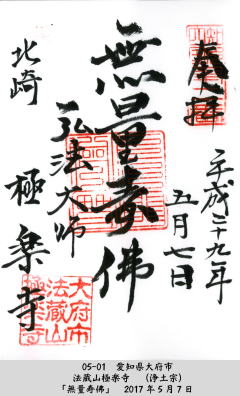 奉拝
平成二十九年
五月七日
無量寿佛
弘法大師
北崎
極楽寺
大府市
法蔵山
極楽寺
05-01 愛知県大府市
法蔵山極楽寺 (浄土宗)
「無量寿佛」 2017年5月7日